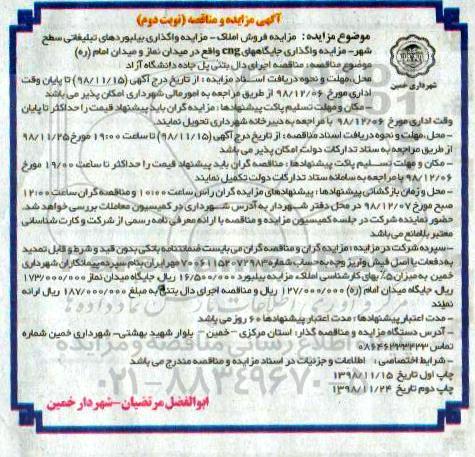 آگهی مزایده و مناقصه (نوبت دوم)
موضوع مزایده: مزایده فروش املاک - مزایده واگذاری بیلبوردهای تبلیغاتی سطح
شهر - مزایده واگذاری جایگاههای cng واقع در میدان نماز و میدان امام (ره)
موضوع مناقصه: مناقصه اجرای دال بتنی پل جاده دانشگاه آزاد
شهرداری خمین
-محل، مهلت و نحوه دریافت اسناد مزایده: از تاریخ درج آگهی (۹۸/۱۱/۱۵) تا پایان وقت
اداری مورخ ۹۸/۱۲/۰۶ از طریق مراجعه به امور مالی شهرداری امکان پذیر می باشد
- مکان و مهلت تسلیم پاکت پیشنهادها: مزایده گران باید پیشنهاد قیمت را حداکثر تا پایان
وقت اداری مورخ ۹۸/۱۲/۰۶ با مراجعه به دبیرخانه شهرداری تحویل نمایند.
- محل، مهلت و نحوه دریافت اسناد مناقصه: از تاریخ درج آگهی (۹۸/۱۱/۱۵) تا ساعت ۱۹:۰۰ مورخ ۹۸/۱۱/۲۵
از طریق مراجعه به ستاد تدارکات دولت امکان پذیر می باشد
- مکان و مهلت تسلیم پاکت پیشنهادها: مناقصه گران باید پیشنهاد قیمت را حداکثر تا ساعت ۱۹:۰۰ مورخ
۹۸/۱۲/۰۶ با مراجعه به سامانه ستاد تدارکات دولت تکمیل نمایند
- محل و زمان بازگشائی پیشنهادها: پیشنهادهای مزایده گران راس ساعت ۱۰:۰۰ و مناقصه گران ساعت ۱۲:۰۰
صبح مورخ ۹۸/۱۲/۰۷ در محل دفتر شهردار به آدرس شهرداری در کمیسیون معاملات بررسی خواهد شد.
حضور نماینده شرکت در جلسه کمیسیون مزایده و مناقصه با ارائه معرفی نامه رسمی از شرکت و کارت شناسائی
معتبر بلامانع می باشد
-سپرده شرکت در مزایده: مزایده گران و مناقصه گران می بایست ضمانتنامه بانکی بدون قید و شرط و قابل تمدید
به دفعات یا اصل فیش واریز وجه به حساب شماره ۷۰۰۶۱۱۵۲۰۷۲۹۸۳ مهر ایران بنام سپرده پیمانکاران شهرداری
خمین به میزان ۵٪ بهای کارشناسی املاک، مزایده بیلبورد ۱۶/۵۰۰/۰۰۰ ریال، جایگاه میدان نماز ۱۷۳/۰۰۰/۰۰۰
ریال، جایگاه میدان امام (ره) ۱۲۷/۰۰۰/۰۰۰ ریال و مناقصه اجرای دال بتنی به مبلغ ۱۸۷/۰۰۰/۰۰۰ ریال ارائه
نمایند
- مدت اعتبار پیشنهادها: مدت اعتبار پیشنهادها ۶۰ روز می باشد
- آدرس دستگاه مزایده و مناقصه گذار: استان مرکزی - خمین - بلوار شهید بهشتی- شهرداری خمین شماره
تماس ۰۸۶۴۶۲۳۳۴۳۳
- شرایط اختصاصی: اطلاعات و جزئیات در اسناد مزایده و مناقصه مندرج می باشد
چاپ اول تاریخ ۱۳۹۸/۱۱/۱۵
چاپ دوم تاریخ ۱۳۹۸/۱۱/۲۴
ابوالفضل مرتضیان-شهردار خمین
۰۲۱-۸۸۳۴۹۶۷۰